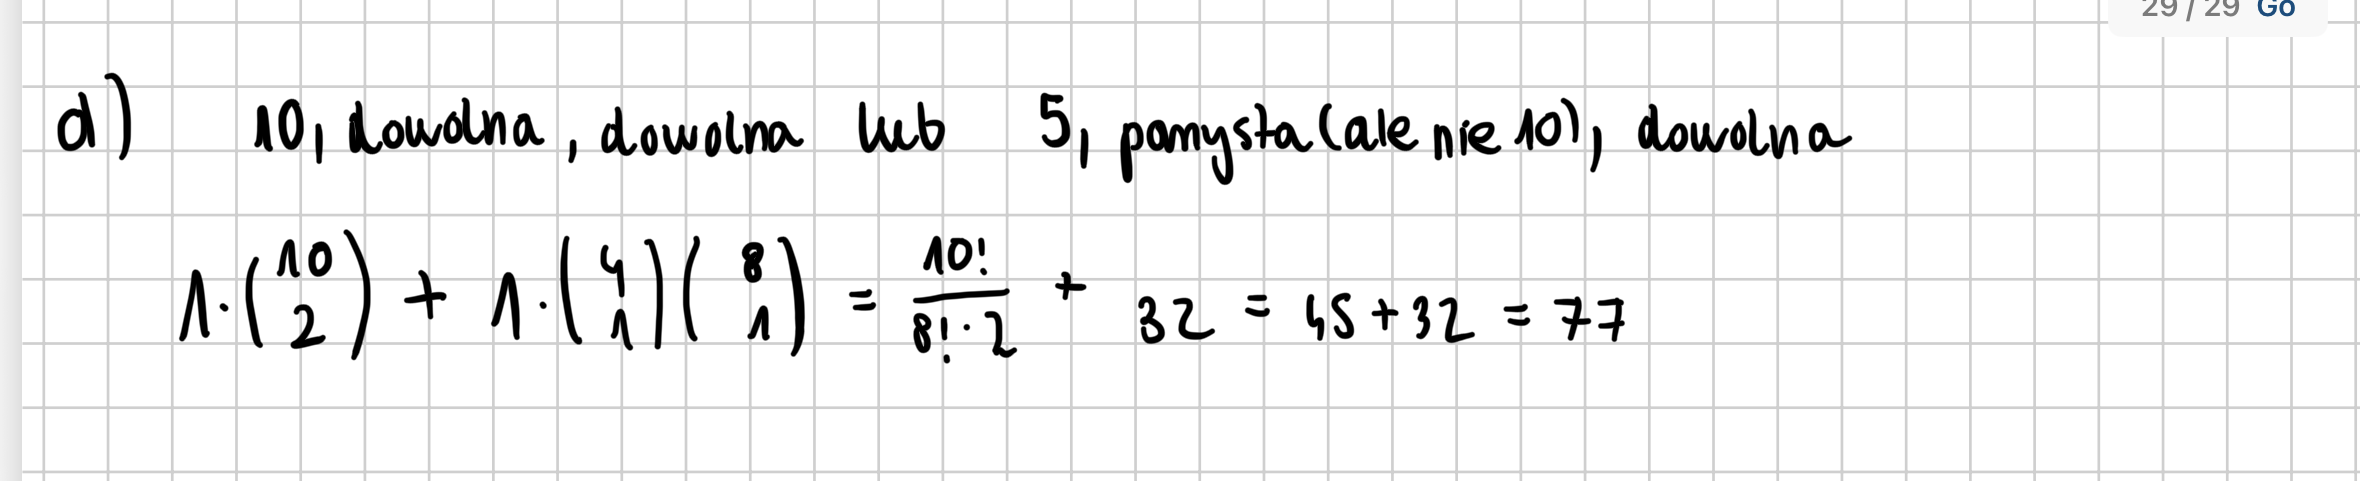 29 / 29 Go
d) 10, dowolna, dowolna lub 5, pamysta (ale nie 10), dowolna
1·(10 2) + 1·(4 1)(8 1) = 10!/(8!·2) + 32 = 45 + 32 = 77